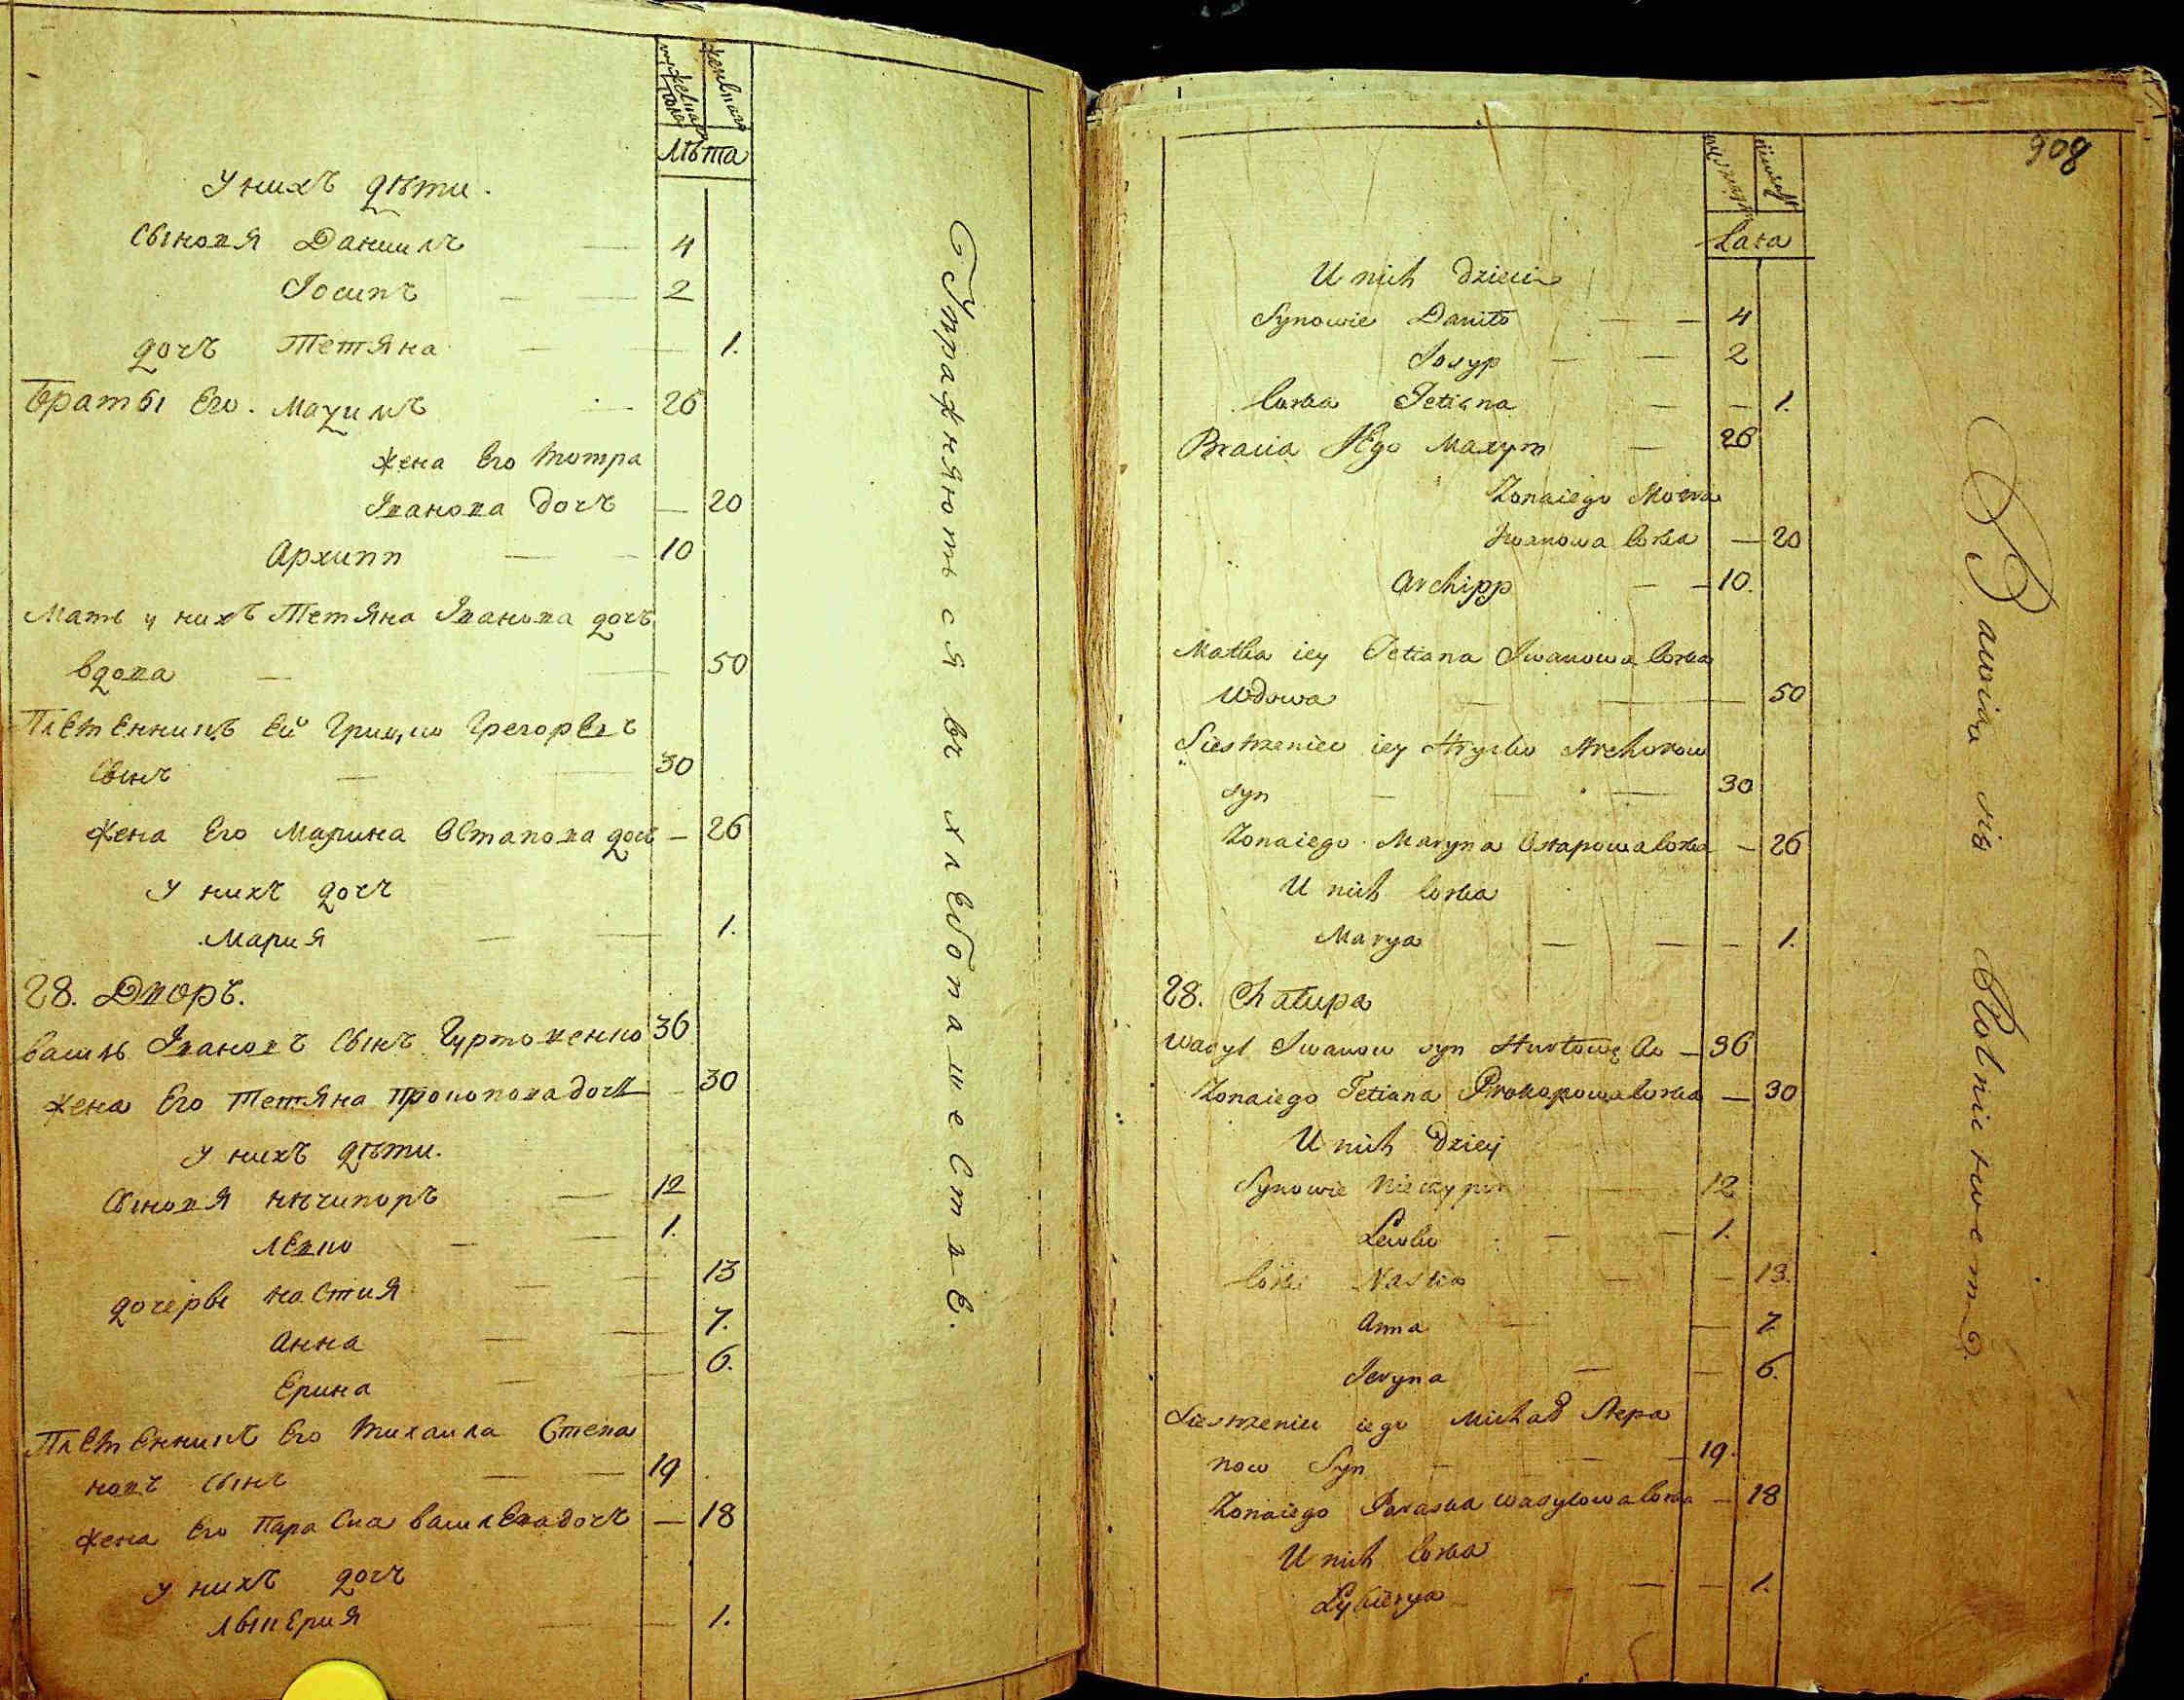 мужескаго пола
женскаго
лѣта
У нихъ дѣти.
Сыновя Даниилъ — 4
Іосипъ — — 2
дочъ Тетяна — — 1.
Браты Его. Мазимъ — 26
жена Его Мотра
Іванова дочъ — 20
Архипп — — 10
Мать у нихъ Тетяна Іванова дочъ
вдова — — 50
Племенникъ Ей Грицко Грегорѣвъ
Сынъ — — 30
жена Его Марина Остапова дочъ — 26
У нихъ дочъ
Мария — — 1.
28. Дворъ.
Василь Івановъ Сынъ Гуртовенко 36
жена Его Тетяна Прокопова дочъ — 30
У нихъ дѣти.
Сыновя Нѣчипоръ — 12
Левко — — 1.
дочерѣ Настия — — 13
Анна — — 7.
Ерина — — 6.
Племенникъ Его Михаила Степа
новъ Сынъ — — 19
жена Его Параска Василева дочъ — 18
У нихъ дочъ
Лыкерия — — 1.
Упражняютъся въ хлебопашестве.
908
Lata
U nich dzieci
Synowie Daniło — — 4
Josyp — — 2
Corka Tetiana — — 1.
Bracia Jego Maxym — 26
Zona iego Motra
Iwanowa Corka — 20
Archipp — — 10.
Matka iey Tetiana Iwanowa Corka
Wdowa — — 50
Siestrzeniec iey Hrycko Hrehorow
syn — — — 30
Zona iego Maryna Ostapowa Corka — 26
U nich Corka
Marya — — — 1.
28. Chałupa
Wasyl Iwanow syn Hurtowęko — 36
Zona iego Tetiana Prokopowa Corka — 30
U nich Dzieci
Synowie Nieczypor — 12
Lewko — — 1.
Corki Nastia — — 13.
Anna — — 7
Jeryna — — 6.
Siestrzeniec iego Michał Stepa
now Syn — — — 19.
Zona iego Paraska Wasylowa Corka — 18
U nich Corka
Łykierya — — 1.
Bawią się Rolnictwem.